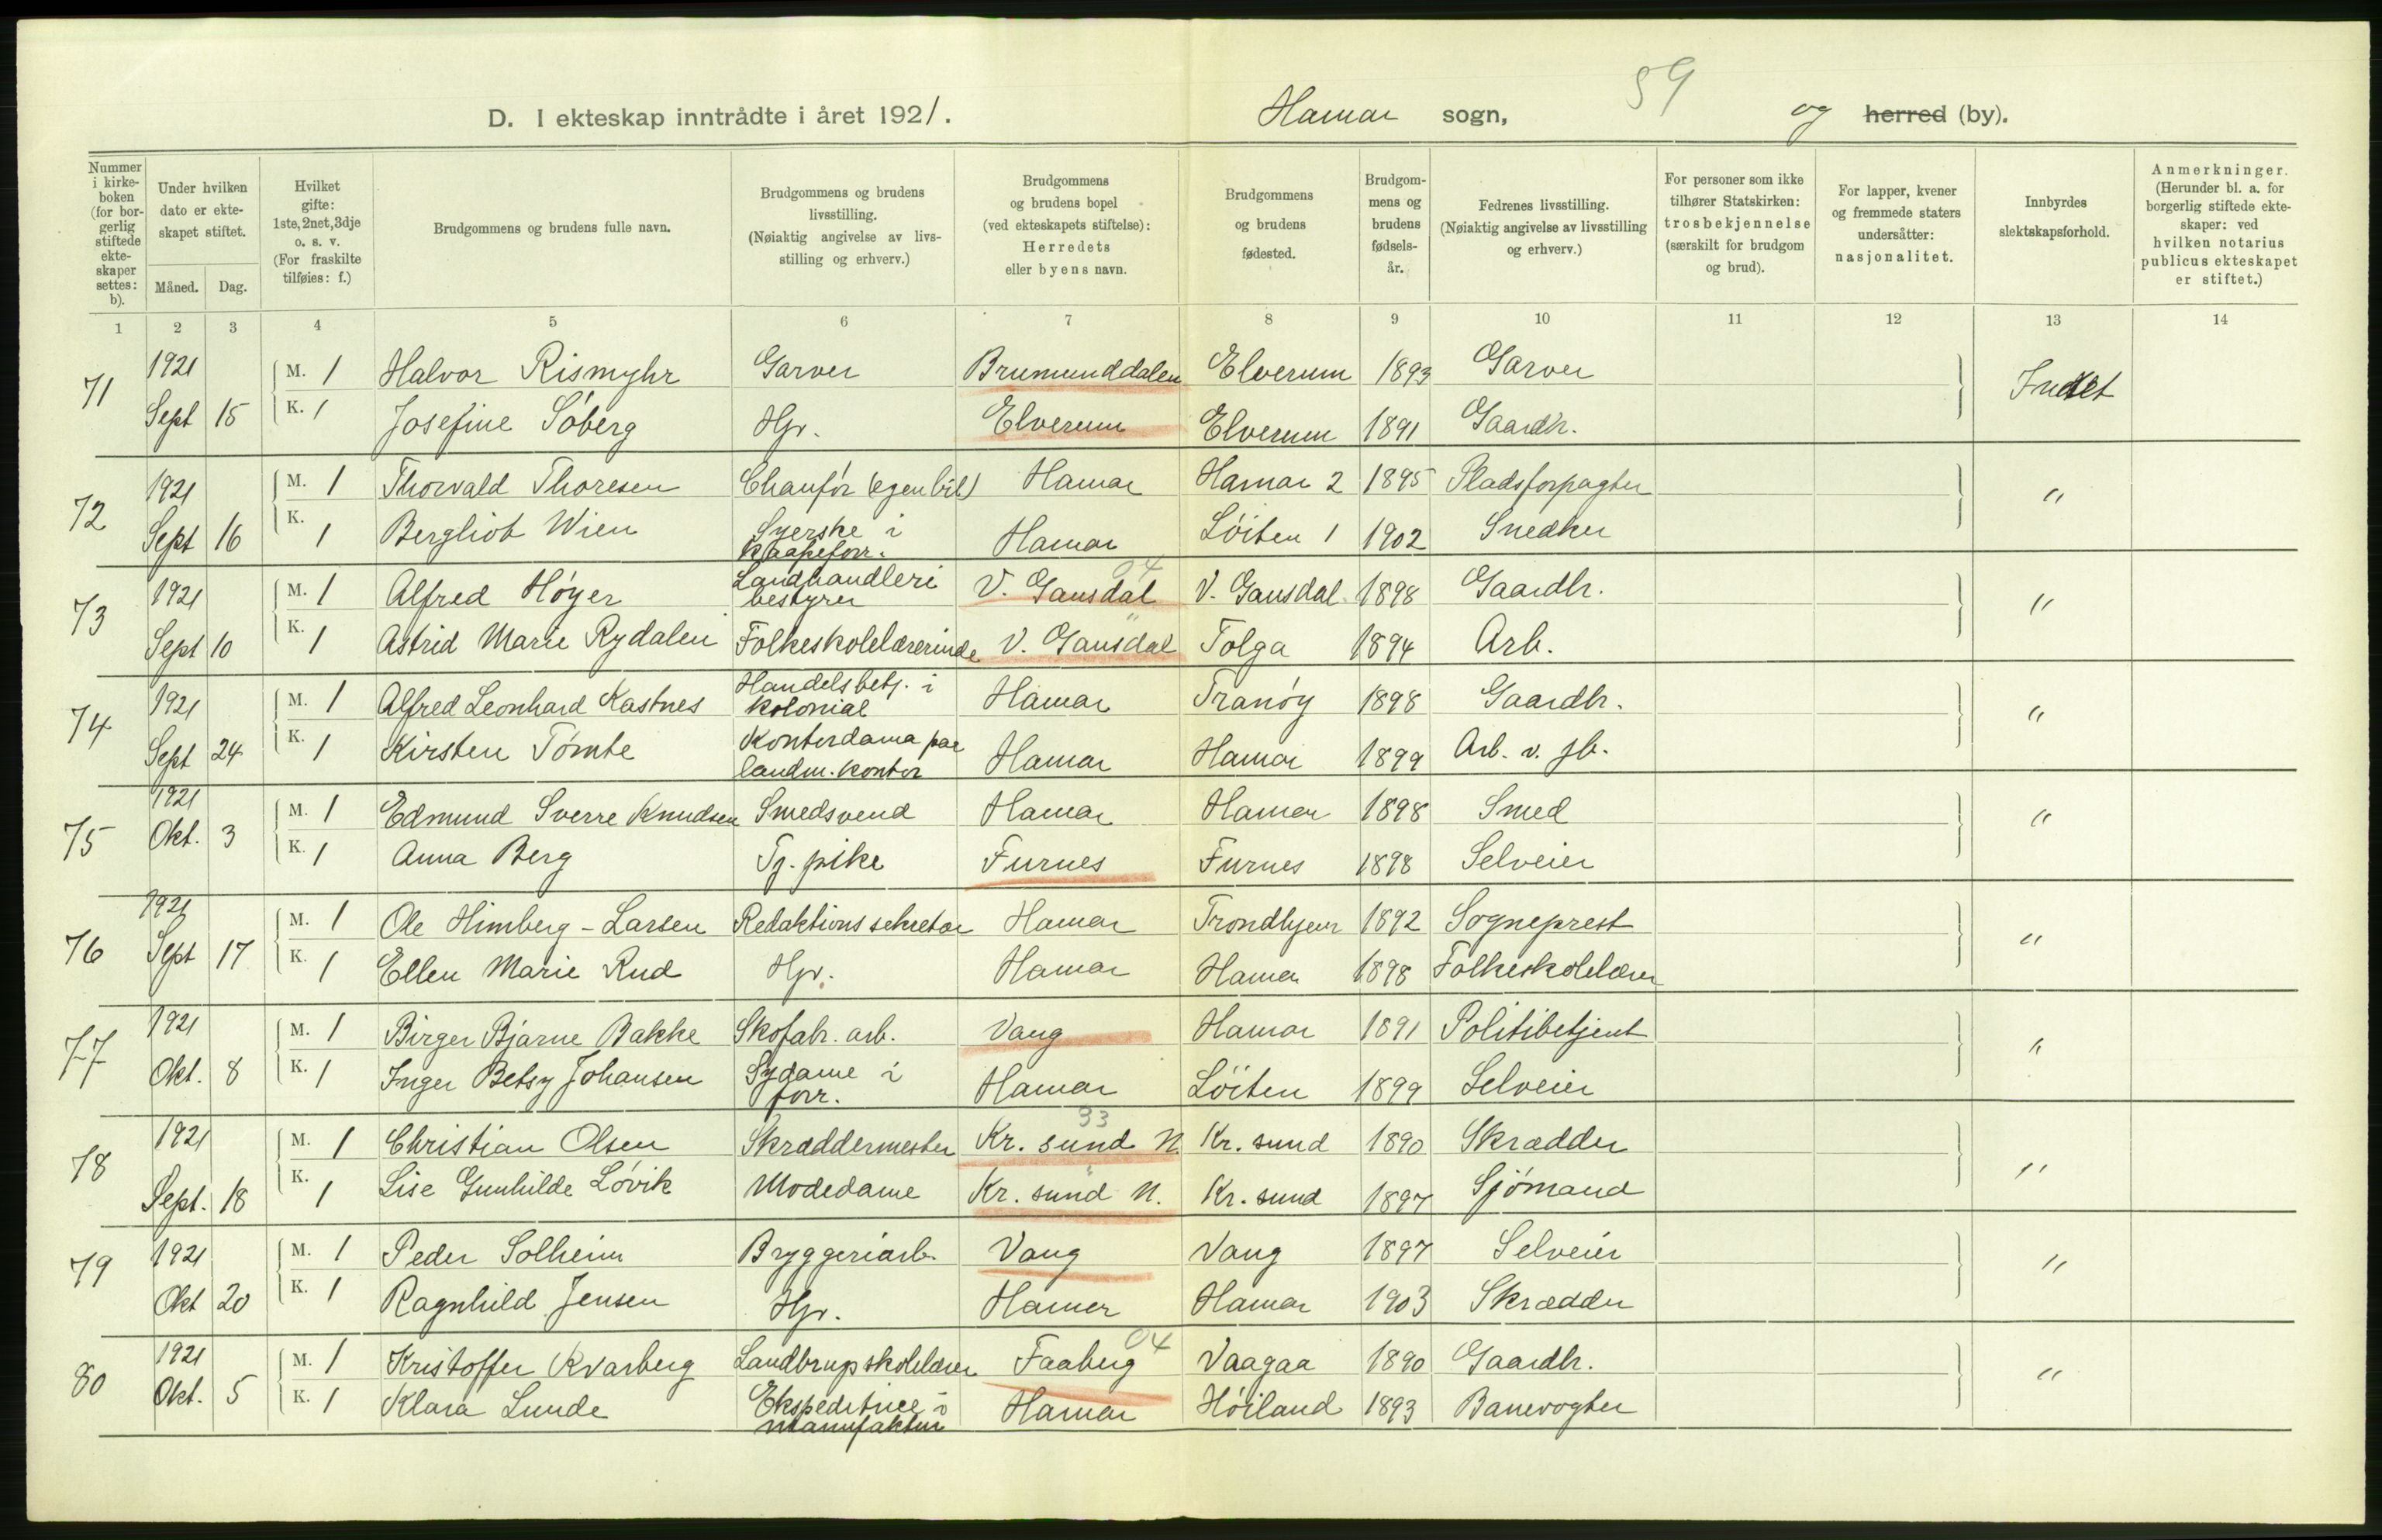 D. I ekteskap inntrådte i året 1921. Hamar sogn, 59 og herred (by).
Nummer i kirkeboken (for borgerlig stiftede ekteskaper settes: b).
Under hvilken dato er ekteskapet stiftet.
Måned. Dag.
Hvilket gifte: 1ste, 2net, 3dje o. s. v. (For fraskilte tilføies: f.)
Brudgommens og brudens fulle navn.
Brudgommens og brudens livsstilling. (Nøiaktig angivelse av livsstilling og erhverv.)
Brudgommens og brudens bopel (ved ekteskapets stiftelse): Herredets eller byens navn.
Brudgommens og brudens fødested.
Brudgommens og brudens fødselsår.
Fedrenes livsstilling. (Nøiaktig angivelse av livsstilling og erhverv.)
For personer som ikke tilhører Statskirken: trosbekjennelse (særskilt for brudgom og brud).
For lapper, kvener og fremmede staters undersåtter: nasjonalitet.
Innbyrdes slektskapsforhold.
Anmerkninger. (Herunder bl. a. for borgerlig stiftede ekteskaper: ved hvilken notarius publicus ekteskapet er stiftet.)
1 2 3 4 5 6 7 8 9 10 11 12 13 14
71 1921 M. 1 Halvor Rismyhr Garver Brumunddalen Elverum 1893 Garver Intet
Sept 15 K. 1 Josefine Söberg Hjr. Elverum Elverum 1891 Gaardbr.
72 1921 M. 1 Thorvald Thoresen Chauför (egen bil) Hamar Hamar 2 1895 Pladsforpagter "
Sept 16 K. 1 Bergliot Wien Syerske i kaapeforr. Hamar Löiten 1 1902 Snedker
73 1921 M. 1 Alfred Höyer Landhandleri bestyrer V. Gausdal 04 V. Gausdal 1898 Gaardbr. "
Sept 10 K. 1 Astrid Marie Rydalen Folkeskolelærerinde V. Gausdal " Tolga 1894 Arb.
74 1921 M. 1 Alfred Leonhard Kastnes Handelsbetj. i kolonial Hamar Tranöy 1898 Gaardbr. "
Sept 24 K. 1 Kirsten Tömte Kontordama paa landm. kontor Hamar Hamar 1899 Arb. v. jb.
75 1921 M. 1 Edmund Sverre Knudsen Smedsvend Hamar Hamar 1898 Smed "
Okt. 3 K. 1 Anna Berg Tj. pike Furnes Furnes 1898 Selveier
76 1921 M. 1 Ole Himberg-Larsen Redaktionssekretær Hamar Trondhjem 1892 Sogneprest "
Sept 17 K. 1 Ellen Marie Rud Hjr. Hamar Hamar 1898 Folkeskolelærer
77 1921 M. 1 Birger Bjarne Bakke Skofabr. arb. Vang Hamar 1891 Politibetjent "
Okt. 8 K. 1 Inger Betsy Johansen Sydame i forr. Hamar Löiten 1899 Selveier
78 1921 M. 1 Christian Olsen Skræddermester Kr. sund N. 33 Kr. sund 1890 Skrædder "
Sept. 18 K. 1 Lise Gunhilde Lövik Modedame Kr. sund N. " Kr. sund 1897 Sjömand
79 1921 M. 1 Peder Solheim Bryggeriarb. Vang Vang 1897 Selveier "
Okt 20 K. 1 Ragnhild Jensen Hjr. Hamar Hamar 1903 Skrædder
80 1921 M. 1 Kristoffer Kvarberg Landbrugsskolelærer Faaberg 04 Vaagaa 1890 Gaardbr. "
Okt. 5 K. 1 Klara Lunde Ekspeditrice i manufaktur Hamar Höiland 1893 Banevogter